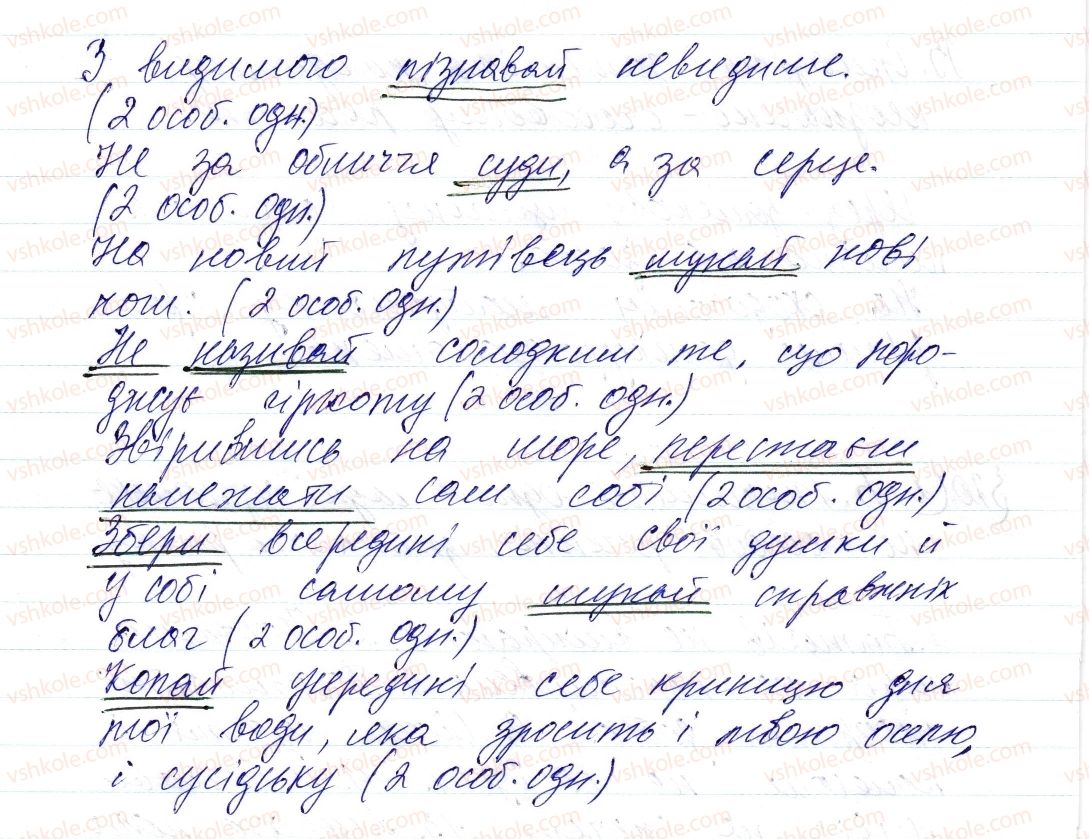 З видимого пізнавай невидиме.
(2 особ. одн.)
Не за обличчя суди, а за серце.
(2 особ. одн.)
На новий путівець шукай нові
ноги. (2 особ. одн.)
Не називай солодким те, що поро-
джує гіркоту (2 особ. одн.)
Звірившись на море, перестаєш
належати сам собі (2 особ. одн.)
Збери всередині себе свої думки й
у собі самому шукай справжніх
благ (2 особ. одн.)
Копай учередині себе криницю для
тої води, яка зросить і твою оселю,
і сусідську (2 особ. одн.)